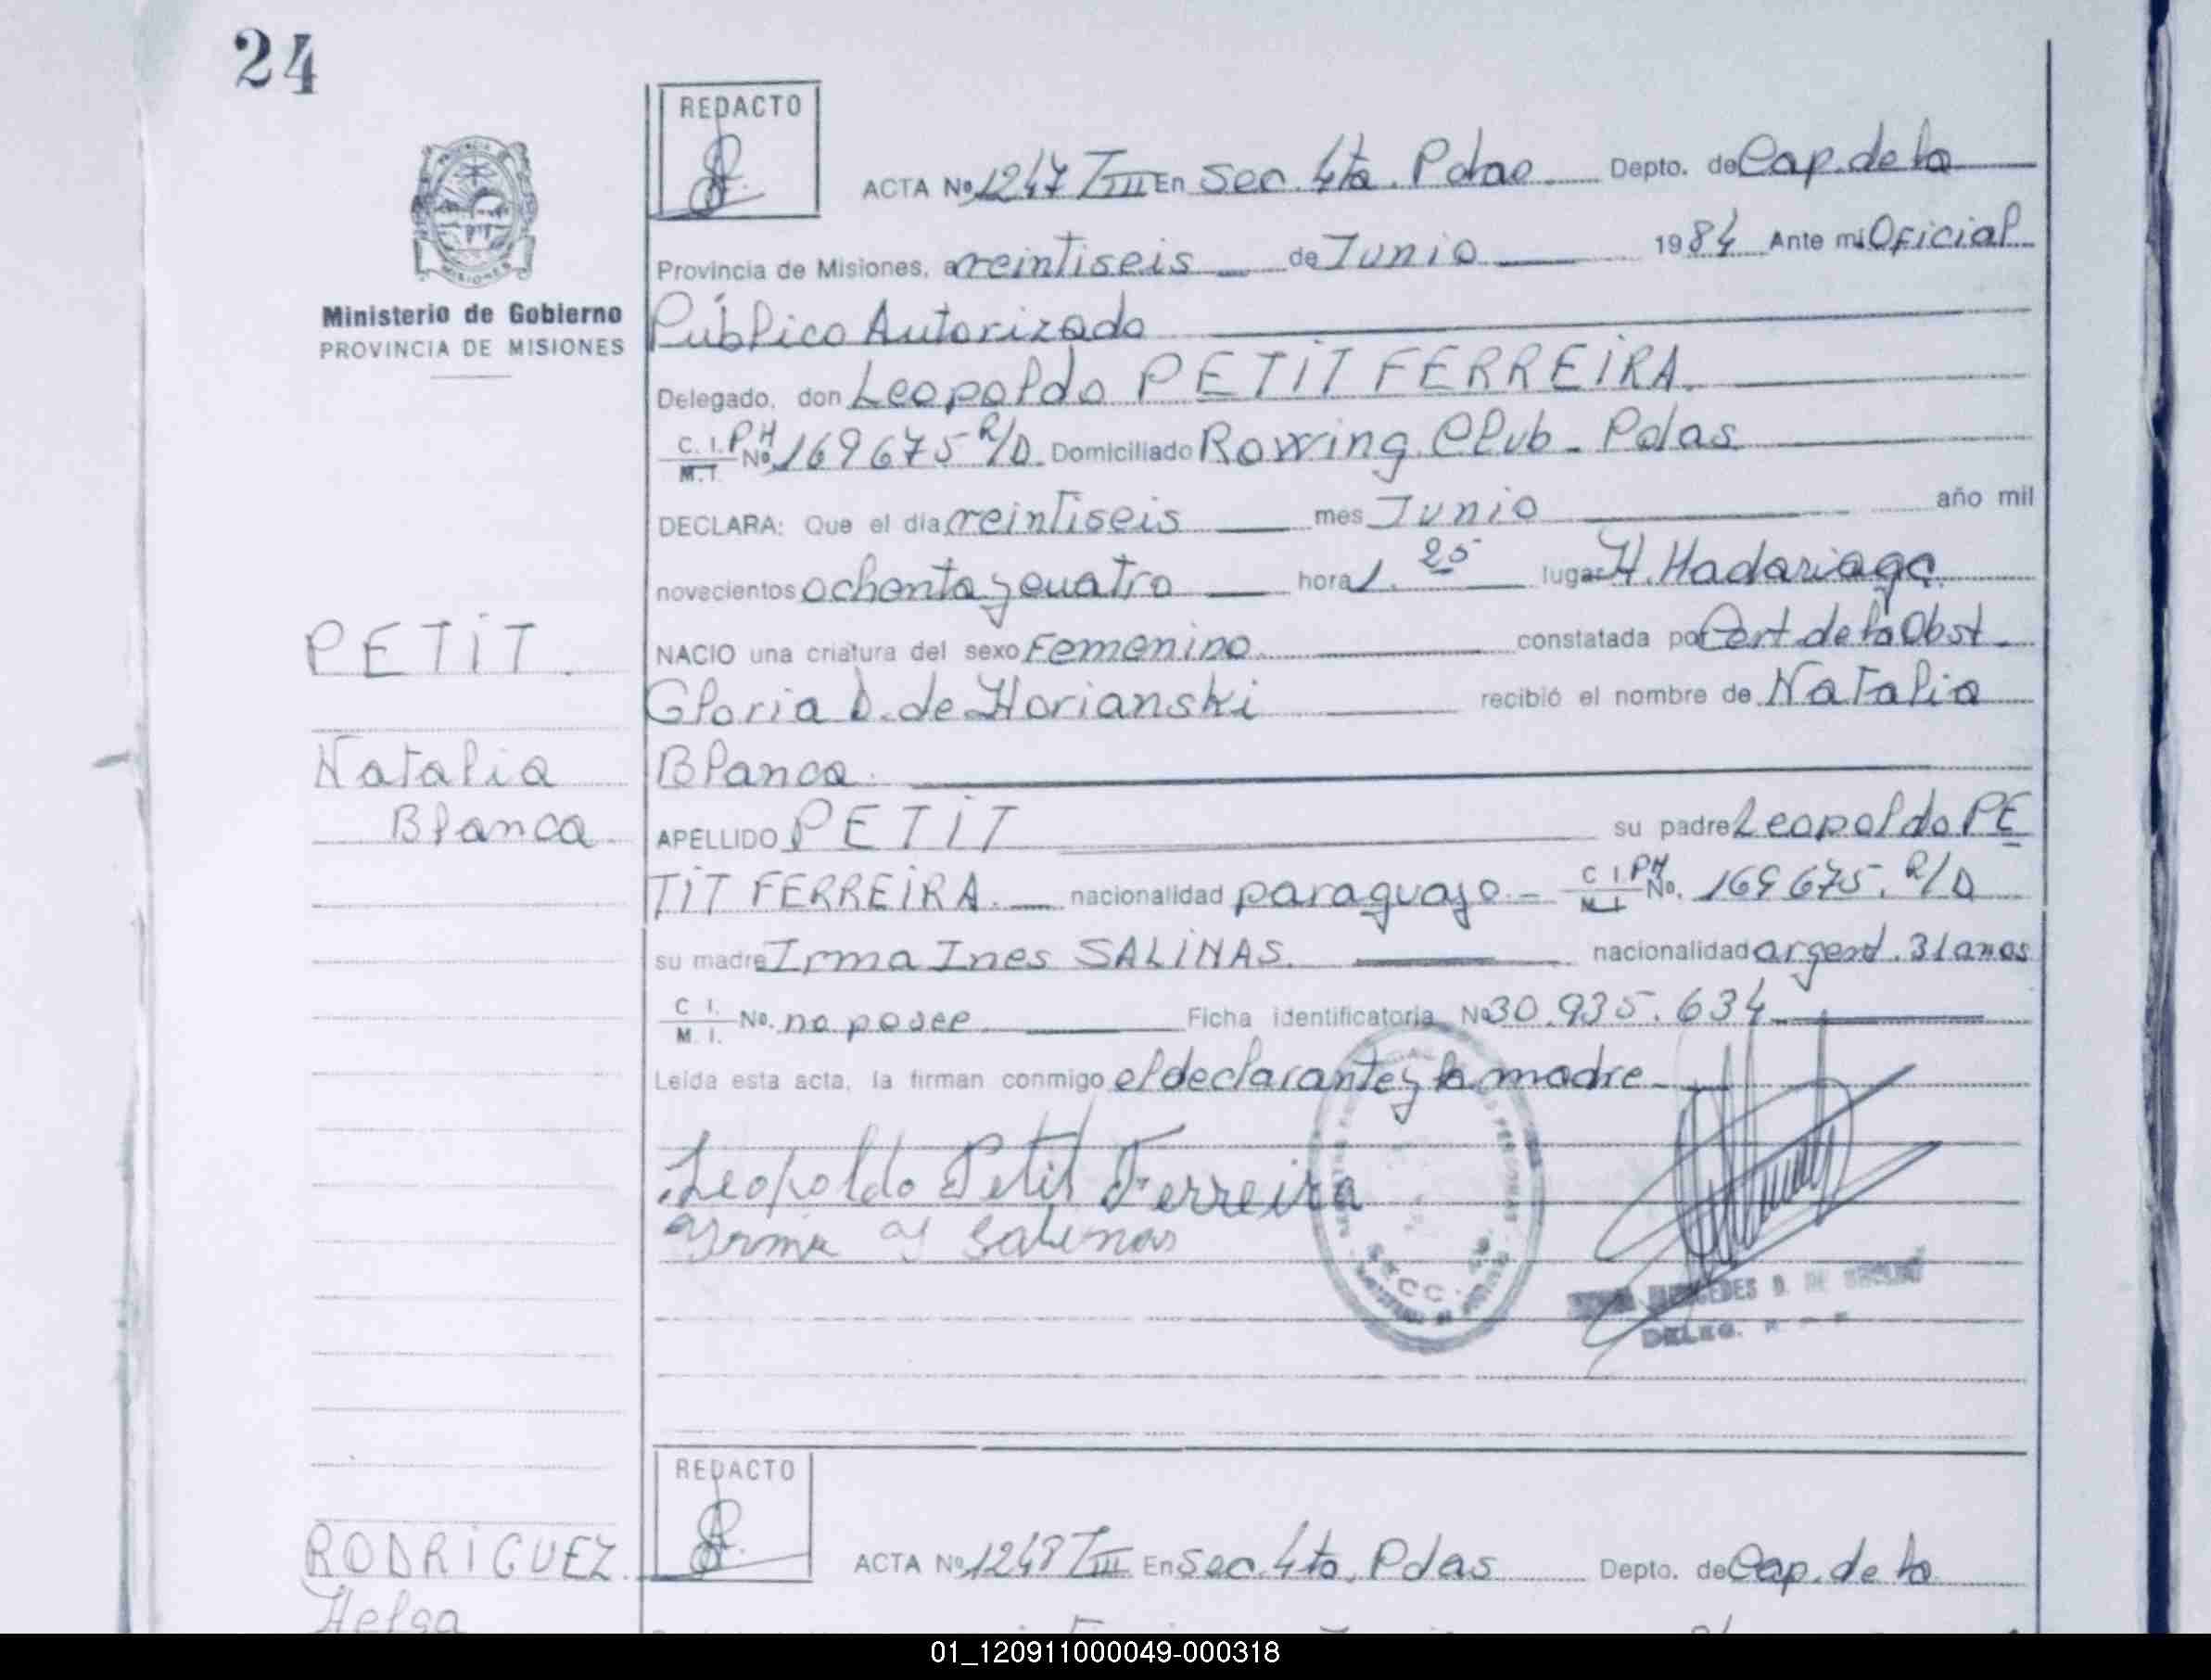 24
REDACTO
ACTA No 1247 TIII En Sec. 4ta. Pdas Depto. de Cap. de la
Provincia de Misiones, a veintiseis de Junio 1984 Ante mi Oficial
Ministerio de Gobierno
PROVINCIA DE MISIONES
Público Autorizado
Delegado, don Leopoldo PETIT FERREIRA.
C. I. PH No 169675 R/D Domiciliado Rowing Club - Pdas
M. I.
DECLARA: Que el día veintiseis mes Junio año mil
novecientos ochenta y cuatro hora 1. 25 lugar H. Madariaga
PETIT
NACIO una criatura del sexo Femenino constatada por Cert de la Obst
Gloria D. de Horianski recibió el nombre de Natalia
Natalia
Blanca.
Blanca
APELLIDO PETIT su padre Leopoldo PE
TIT FERREIRA. nacionalidad paraguayo - C I PH No. 169675. R/D
M I
su madre Irma Ines SALINAS. nacionalidad argent. 31 anos
C I. No. no posee Ficha identificatoria No 30.935.634
M. I.
Leída esta acta, la firman conmigo el declarante y la madre
Leopoldo Petit Ferreira
Yrma Salinas
SECC.
DELEG.
REDACTO
RODRIGUEZ
ACTA No 1248 TIII En Sec. 4ta. Pdas Depto. de Cap. de la
Helga
01_120911000049-000318